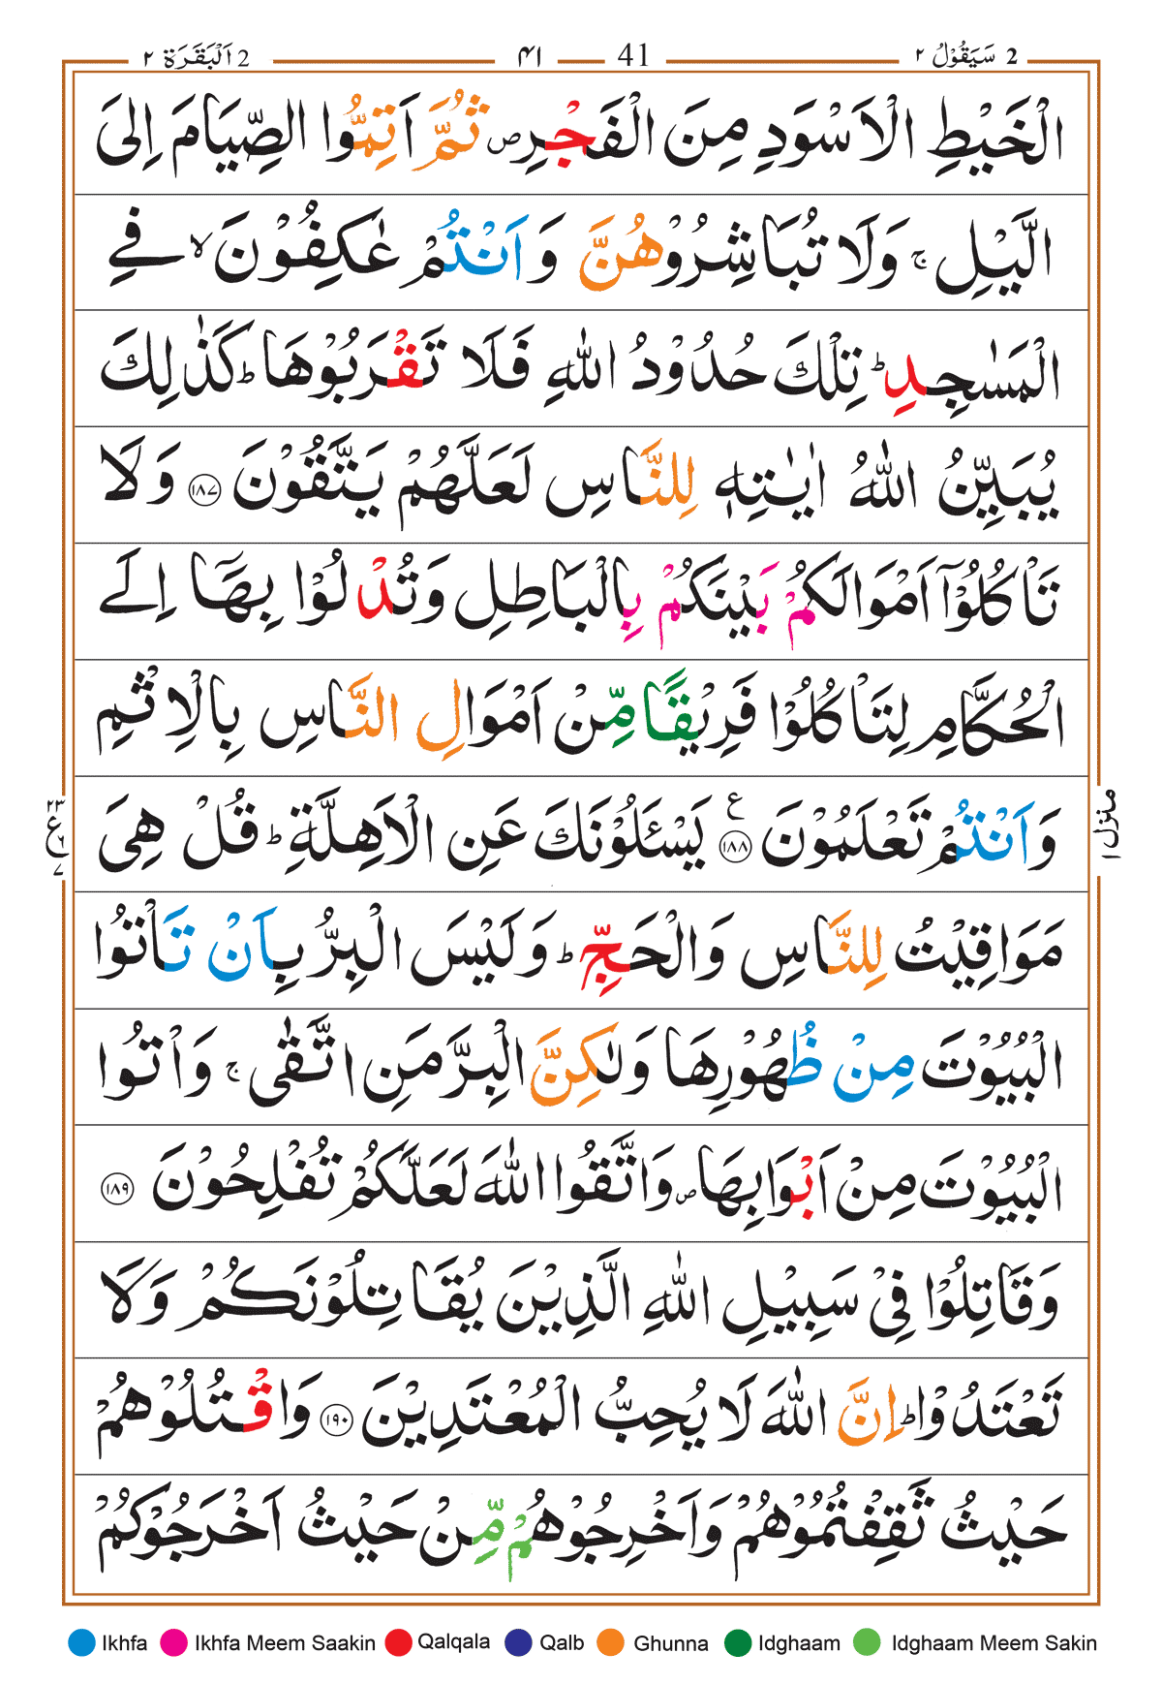 2 اَلْبَقَرَة ٢ ۴۱ 41 2 سَيَقُوْلُ ٢
الْخَيْطِ الْاَسْوَدِ مِنَ الْفَجْرِ ۪ ثُمَّ اَتِمُّوا الصِّيَامَ اِلَى
الَّيْلِ ۚ وَلَا تُبَاشِرُوْهُنَّ وَاَنْتُمْ عٰكِفُوْنَ ۙ فِي
الْمَسٰجِدِ ؕ تِلْكَ حُدُوْدُ اللّٰهِ فَلَا تَقْرَبُوْهَا ؕ كَذٰلِكَ
يُبَيِّنُ اللّٰهُ اٰيٰتِهٖ لِلنَّاسِ لَعَلَّهُمْ يَتَّقُوْنَ ﴿۱۸۷﴾ وَلَا
تَاْكُلُوْۤا اَمْوَالَكُمْ بَيْنَكُمْ بِالْبَاطِلِ وَتُدْلُوْا بِهَاۤ اِلَى
الْحُكَّامِ لِتَاْكُلُوْا فَرِيْقًا مِّنْ اَمْوَالِ النَّاسِ بِالْاِثْمِ
وَاَنْتُمْ تَعْلَمُوْنَ ﴿۱۸۸﴾ ع يَسْـَٔلُوْنَكَ عَنِ الْاَهِلَّةِ ؕ قُلْ هِيَ
مَوَاقِيْتُ لِلنَّاسِ وَالْحَجِّ ؕ وَلَيْسَ الْبِرُّ بِاَنْ تَاْتُوا
الْبُيُوْتَ مِنْ ظُهُوْرِهَا وَلٰكِنَّ الْبِرَّ مَنِ اتَّقٰى ۚ وَاْتُوا
الْبُيُوْتَ مِنْ اَبْوَابِهَا ۪ وَاتَّقُوا اللّٰهَ لَعَلَّكُمْ تُفْلِحُوْنَ ﴿۱۸۹﴾
وَقَاتِلُوْا فِيْ سَبِيْلِ اللّٰهِ الَّذِيْنَ يُقَاتِلُوْنَكُمْ وَلَا
تَعْتَدُوْا ؕ اِنَّ اللّٰهَ لَا يُحِبُّ الْمُعْتَدِيْنَ ﴿۱۹۰﴾ وَاقْتُلُوْهُمْ
حَيْثُ ثَقِفْتُمُوْهُمْ وَاَخْرِجُوْهُمْ مِّنْ حَيْثُ اَخْرَجُوْكُمْ
۲۳
ع
۶
۷
منزل ۱
Ikhfa Ikhfa Meem Saakin Qalqala Qalb Ghunna Idghaam Idghaam Meem Sakin